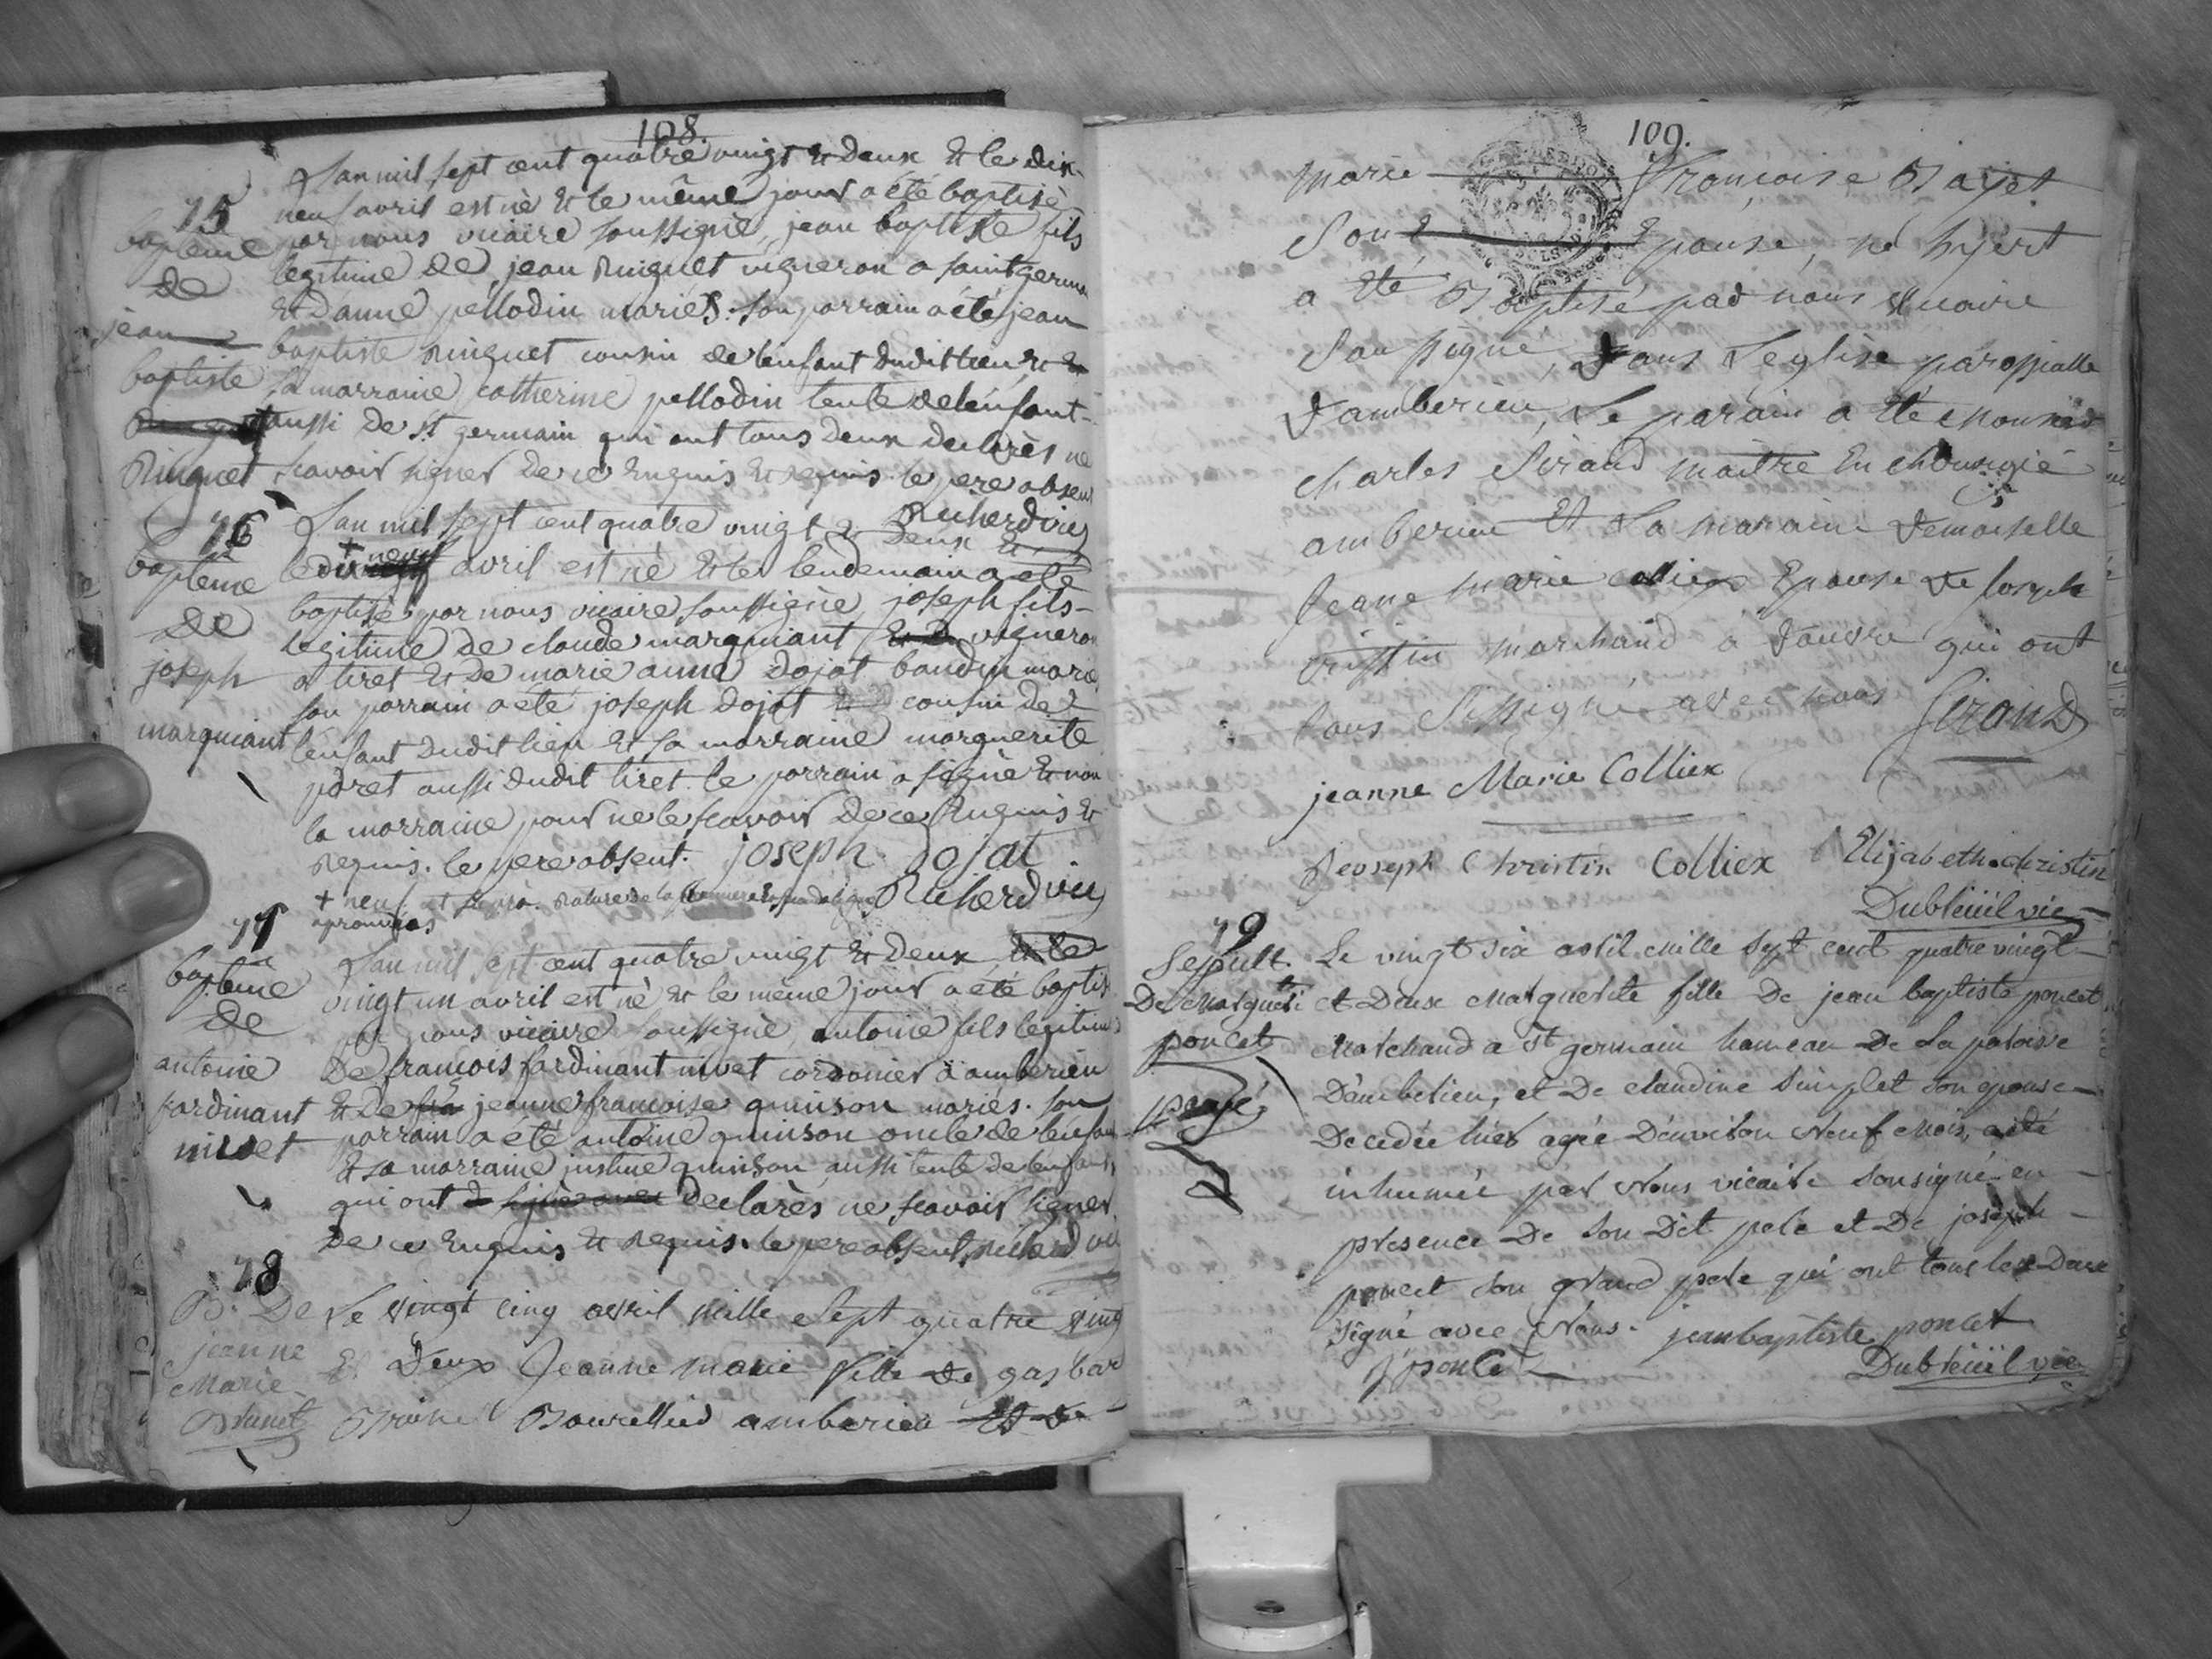 108.
75
baptême
de
jean
baptiste
Ringuet
L'an mil sept cent quatre vingt et deux et le dix
neuf avril est né et le même jour a été baptisé
par nous vicaire soussigné, jean baptiste fils
legitime de jean Ringuet vigneron a saint germain
et d'anne pellodin mariés. son parrain a été jean
baptiste Ringuet cousin de l'enfant dudit lieu et
sa marraine catherine pellodin tente de lenfant
aussi de st germain qui ont tous deux declarés ne
scavoir signer de ce enquis et requis. le pere absent
Richerd vic
76
baptême
de
joseph
marquiant
L'an mil sept cent quatre vingt et deux et
le + neuf avril est né et le lendemain a été
baptisé par nous vicaire soussigné joseph fils
legitime de claude marquiant vigneron
a tiret et de marie anne dojat baudin mariés
son parrain a été joseph dojat cousin de
l'enfant dudit lieu et sa marraine marguerite
poret aussi dudit tiret. le parrain a signé et non
la marraine pour ne le scavoir de ce enquis et
requis. le pere absent. joseph dojat.
+ neuf
aprouvées
Richerd vic
77
baptême
de
antoine
fardinant
nivet
L'an mil sept cent quatre vingt et deux et le
vingt un avril est né et le même jour a été baptisé
par nous vicaire soussigné, antoine fils legitime
de francois fardinant nivet cordonier a amberieu
et de jeanne francoise quinson mariés. son
parrain a été antoine quinson oncle de lenfant
et sa marraine justine quinson aussi tente de lenfant
qui ont declarés ne scavoir signer
de ce enquis et requis. le pere absent. Richerd vic
78
B. De
jeanne
Marie
Brunet
Le vingt cinq avril mille sept quatre vingt
Et Deux Jeanne marie fille De gasbar
Bourellier amberieu Et de
109.
Marie Françoise Bajet
Son Epouse, né hyert
a Eté Baptisé par nous vicaire
Soussigné, Dans L'eglise paroissialle
D'amberieu, Le parain a Eté
Charles Sirand maitre En chirurgie
amberieu Et La maraine Demoiselle
Jeane marie colliex Epouse De Joseph
cristin marchand a qui ont
tous Sissigné avec nous Sirand
jeanne Marie Colliex
Jeoseph Christin Colliex Elisabeth cristin
Dubreüil vic
79
Sepult.
De Marguerite
poncet
payé
Le vingt six avril mille sept cent quatre vingt
et Deux Marguerite fille De jean baptiste poncet
Marchand a st germain hameau De La paroisse
D'amberieu, et De claudine simplet son epouse
Decedée hier agée D'environ Neuf Mois, a été
inhumée par Nous vicaire sousigné en
presence De son Dit pere et De joseph
poncet son grand pere qui ont tous les Deux
signé avec Nous. jean baptiste poncet
J poncet
Dubreüil vic